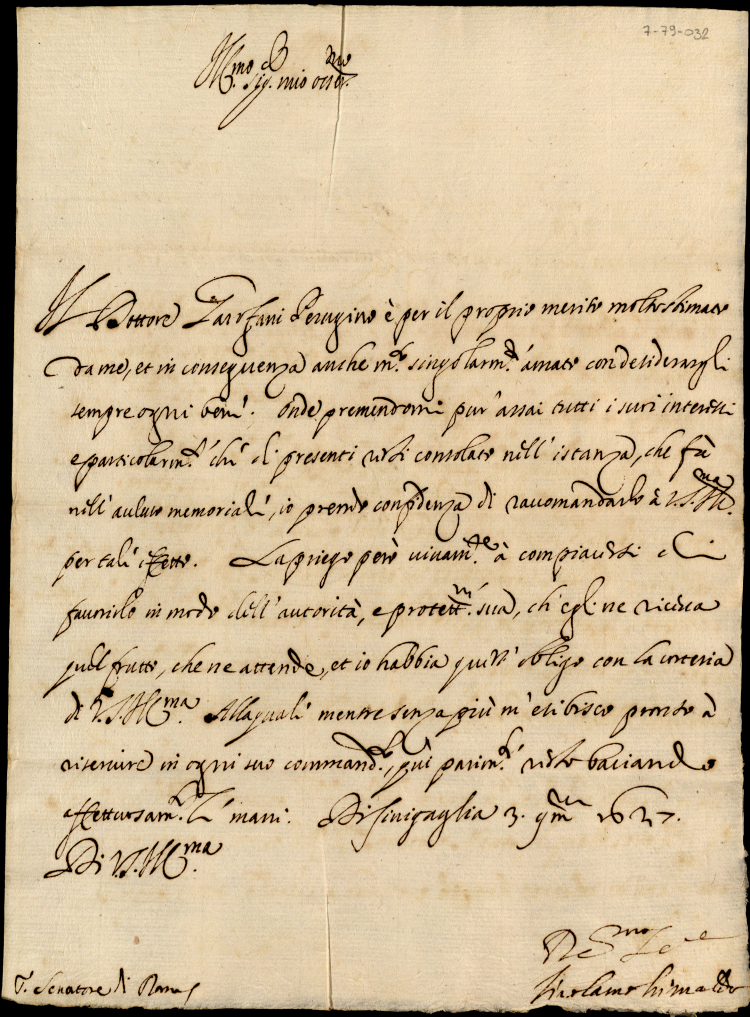 7-79-032
Ill.mo Sig. mio oss.mo
Il Dottore Perugino è per il proprio merito molto stimato
da me, et in conseguenza anche m.to singolarm.te amato con desiderargli
sempre ogni bene. onde premendomi pur' assai tutti i suoi interessi
e particolarm.te che di presente resti consolato nell' istanza, che fà
nell' memoriale, io prendo confidenza di raccomandarlo à V.S. Ill.ma
per tale effetto. La priego però vivam.te à compiacersi di
favorirlo in modo dell' autorità, e protett.ne sua, ch' egli ne riceva
quel frutto, che ne attende, et io habbia quest' obligo con la cortesia
di V.S. Ill.ma Alla quale mentre senza più m' esibisco pronto à
riservire in ogni suo commando, quì parim.te resto baciando
affettuosam.te le mani. Di Sinigaglia 3. 9mbre 1627.
Di V.S. Ill.ma
Senatore di Roma
Girolamo